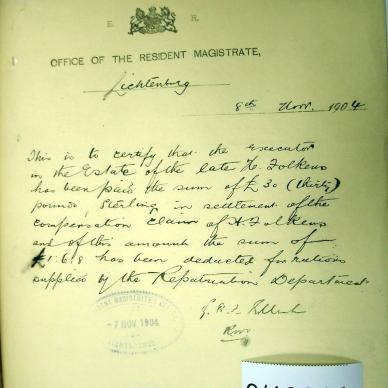 E. R.
OFFICE OF THE RESIDENT MAGISTRATE,
Lichtenburg
8th Novr. 1904
This is to certify that the Executor
in the Estate of the late H. Folkens
has been paid the sum of £30 (thirty)
pounds, Sterling in settlement of the
compensation claim of H. Folkens
and of this amount the sum of
£1.6.8 has been deducted for rations
supplied by the Repatriation Department
RESIDENT MAGISTRATE'S OFFICE
-7 NOV. 1904